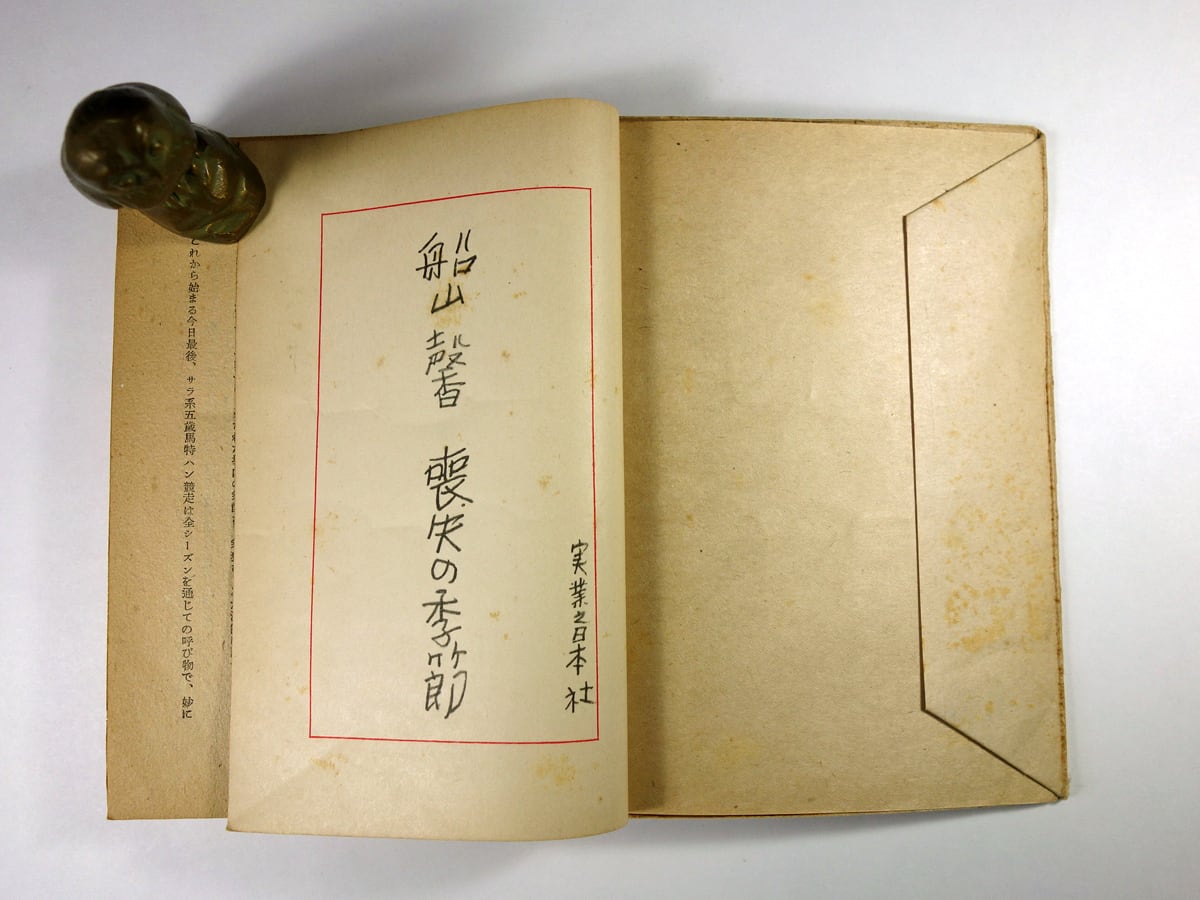 実業之日本社
船山馨 喪失の季節
これから始まる今日最後、サラ系五歳馬特ハン競走は全シーズンを通じての呼び物で、妙に